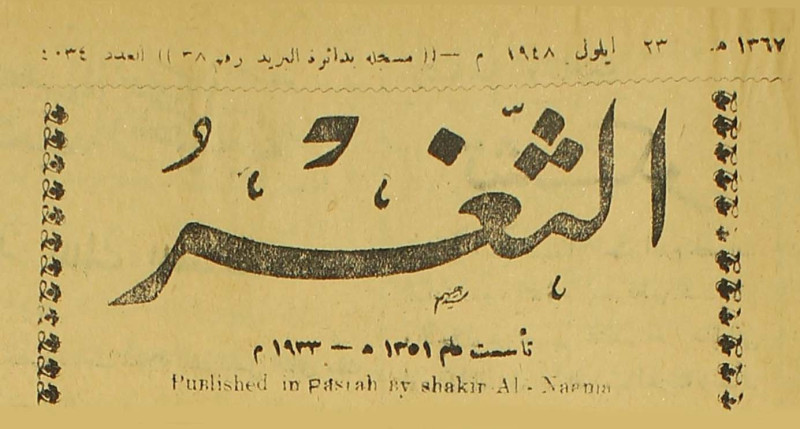 ١٣٦٧ هـ ٢٣ ايلول ١٩٤٨ م — (( مسجله بدائرة البريد رقم ٣٨ )) العدد ٤٠٣٤
الثَّغْرُ
تأسست عام ١٣٥١ ه — ١٩٣٣ م
Published in Basrah By shakir Al - Naama